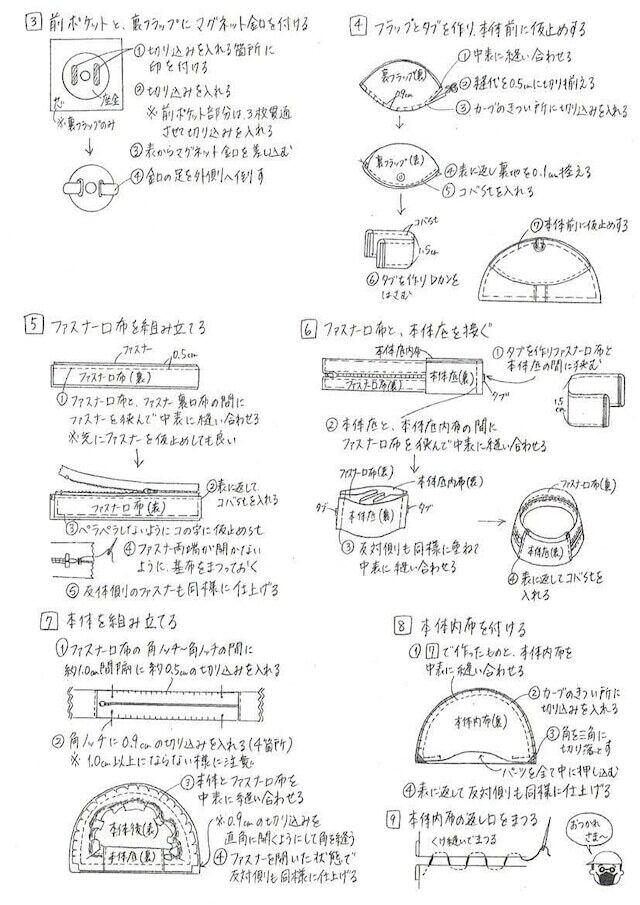 3 前ポケットと、裏フラップにマグネット金口を付ける
①切り込みを入れる箇所に
印を付ける
②切り込みを入れる
※前ポケット部分は、3枚貫通
させて切り込みを入れる
芯
座金
※裏フラップのみ
③表からマグネット金口を差し込む
④金口の足を外側へ倒す
4 フラップとタブを作り、本体前に仮止めする
①中表に縫い合わせる
裏フラップ(裏)
0.9cm
②縫代を0.5cmに切り揃える
③カーブのきつい所に切り込みを入れる
裏フラップ(表)
④表に返し裏地を0.1cm控える
⑤コバstを入れる
コバst
1.5cm
⑥タブを作りDカンを
はさむ
⑦本体前に仮止めする
5 ファスナー口布を組み立てる
ファスナー
0.5cm
ファスナー口布(裏)
①ファスナー口布と、ファスナー裏口布の間に
ファスナーを挟んで中表に縫い合わせる
※先にファスナーを仮止めしても良い
ファスナー口布(表)
②表に返して
コバstを入れる
③ペラペラしないようにコの字に仮止めst
④ファスナー両端が開かない
ように、基布をまつっておく
⑤反体側のファスナーも同様に仕上げる
6 ファスナー口布と、本体底を接ぐ
本体底内布
ファスナー口布(表)
本体底(裏)
タブ
①タブを作りファスナー口布と
本体底の間に挟む
1.5cm
②本体底と、本体底内布の間に
ファスナー口布を挟んで中表に縫い合わせる
ファスナー口布(表)
本体底内布(裏)
タブ
本体底(裏)
タブ
③反対側も同様に重ねて
中表に縫い合わせる
ファスナー口布(表)
本体底(表)
④表に返してコバstを
入れる
7 本体を組み立てる
①ファスナー口布の角ノッチ〜角ノッチの間に
約1.0cm間隔に約0.5cmの切り込みを入れる
②角ノッチに0.9cmの切り込みを入れる(4箇所)
※1.0cm以上にならない様に注意
③本体とファスナー口布を
中表に縫い合わせる
※0.9cmの切り込みを
直角に開くようにして角を縫う
④ファスナーを開いた状態で
反対側も同様に仕上げる
本体後(表)
本体底(裏)
8 本体内布を付ける
①7で作ったものと、本体内布を
中表に縫い合わせる
本体内布(裏)
②カーブのきつい所に
切り込みを入れる
③角を三角に
切り落とす
パーツを全て中に押し込む
④表に返して反対側も同様に仕上げる
9 本体内布の返し口をまつる
くけ縫いでまつる
おつかれ
さま〜